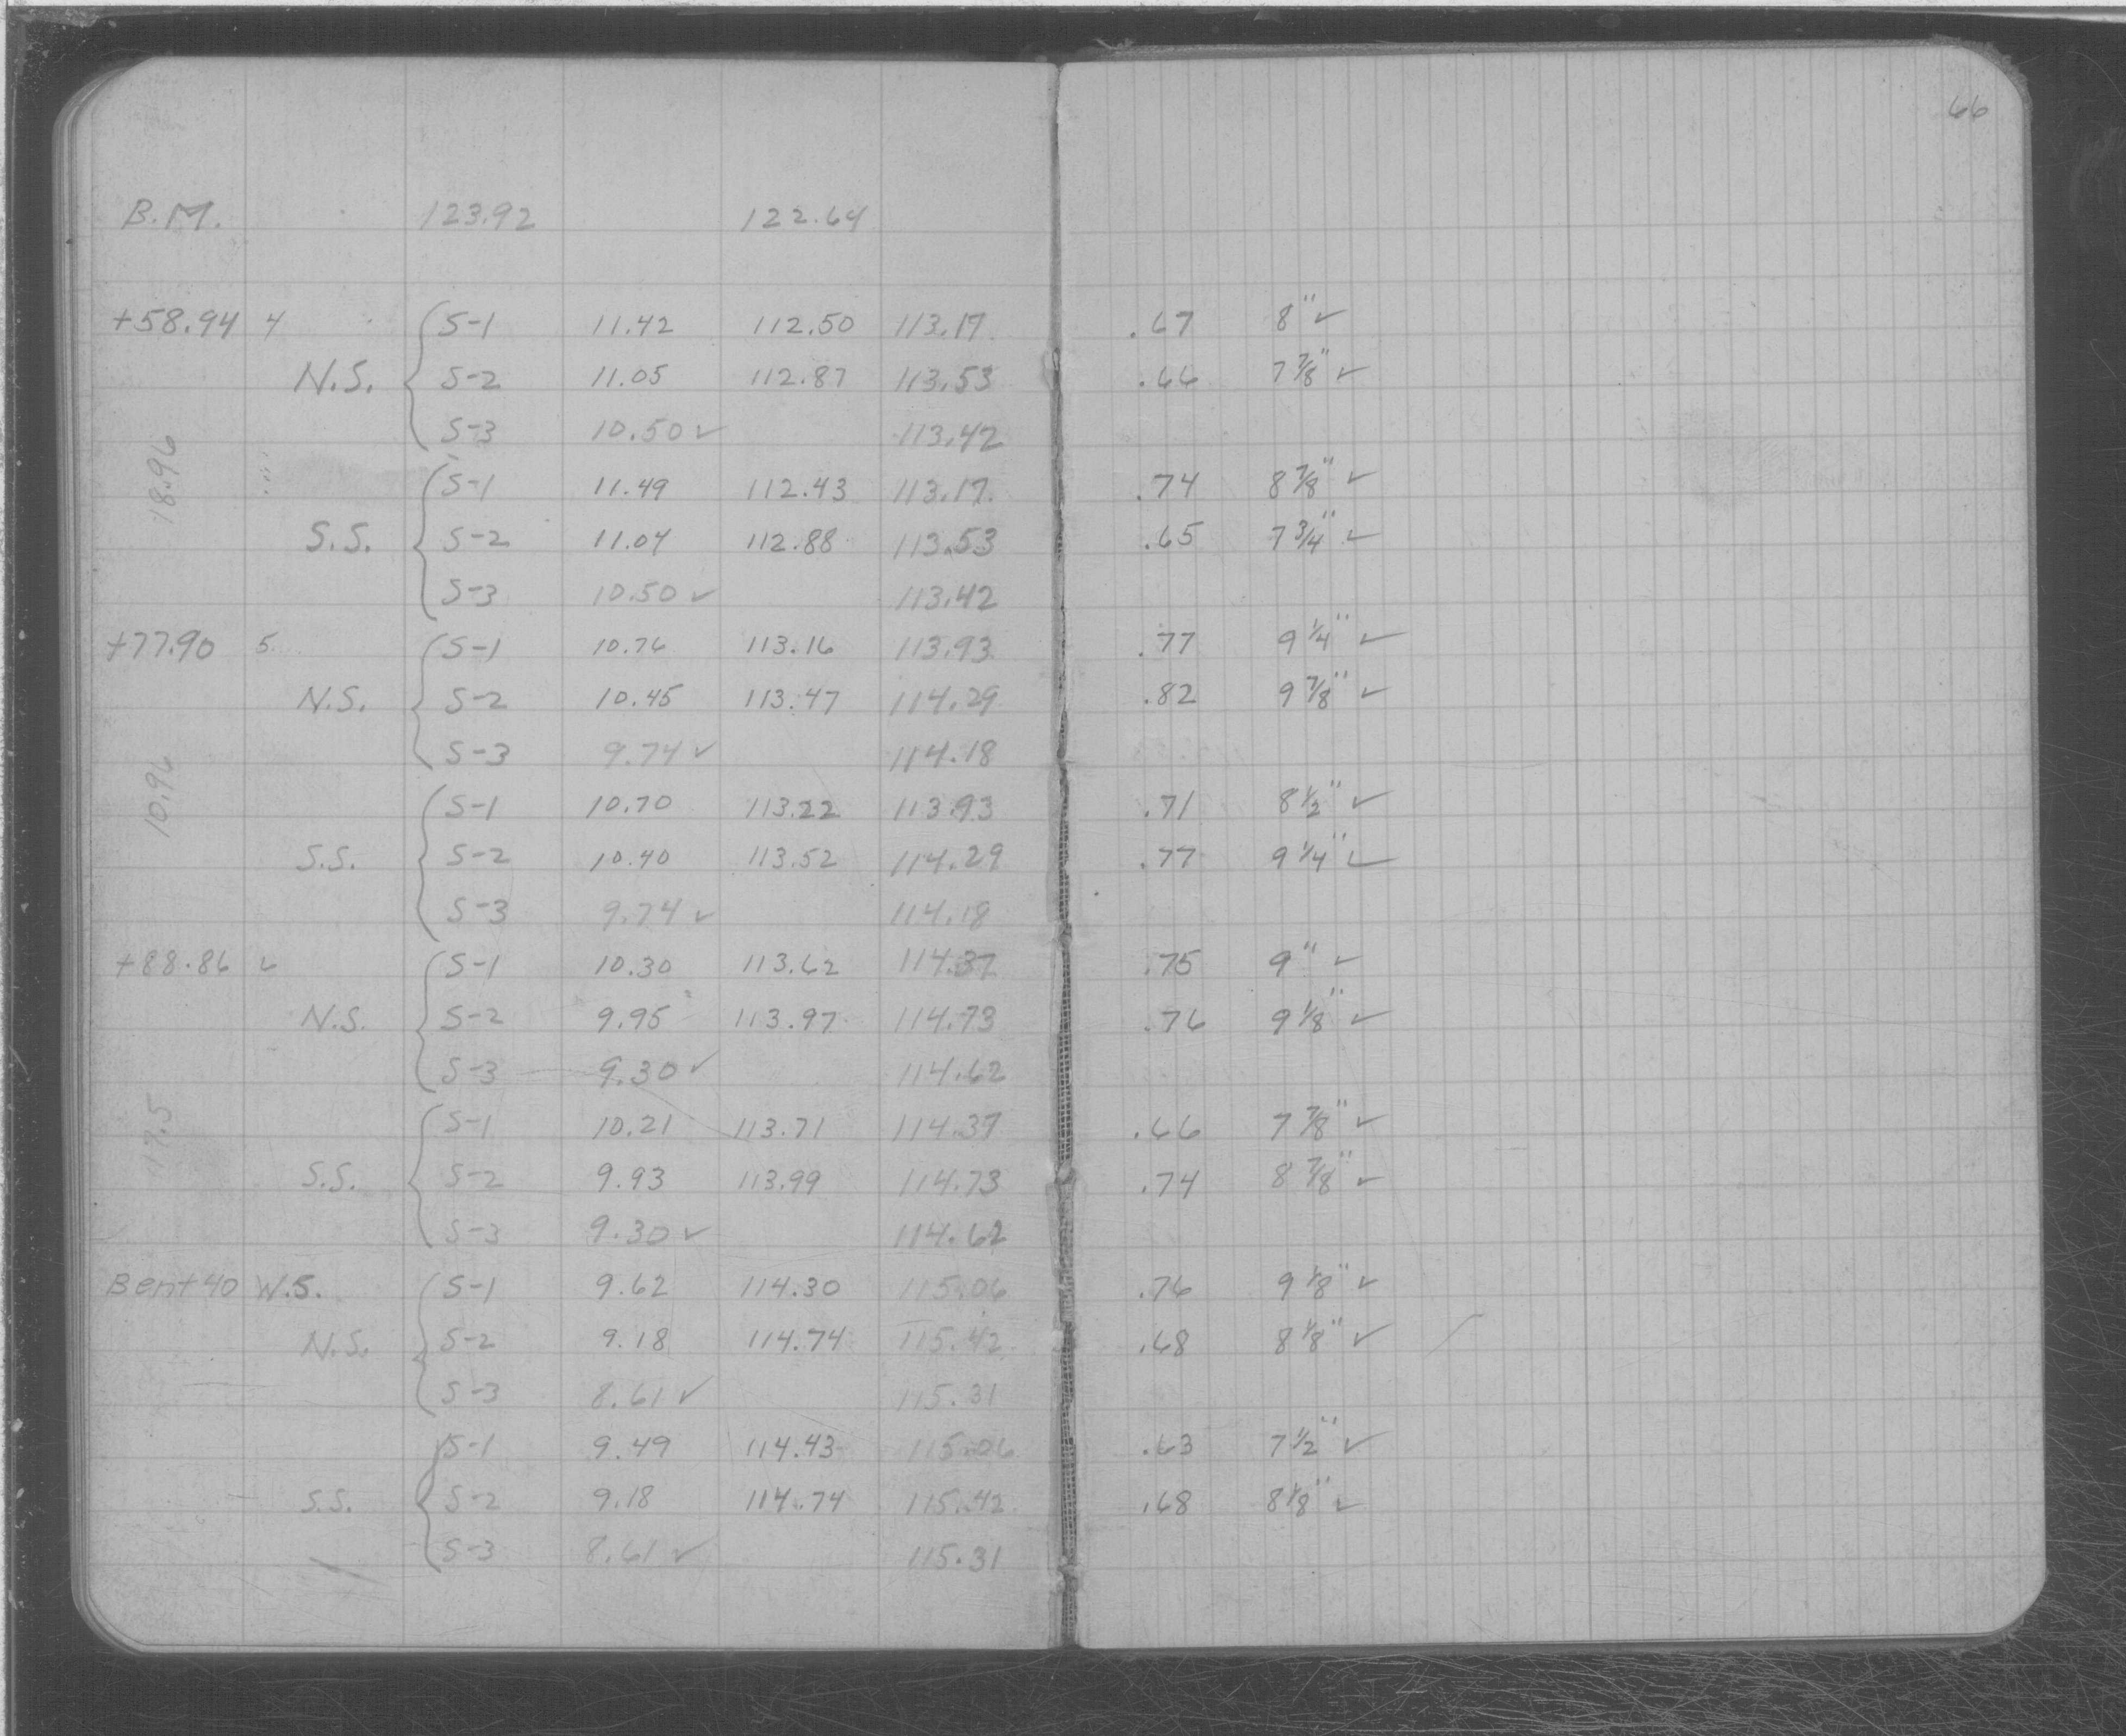 66
B.M. 123.92 122.64
+58.94 4 S-1 11.42 112.50 113.17 .67 8" ✓
N.S. S-2 11.05 112.87 113.53 .66 7 7/8" ✓
S-3 10.50 ✓ 113.42
18.96
S-1 11.49 112.43 113.17 .74 8 7/8" ✓
S.S. S-2 11.04 112.88 113.53 .65 7 3/4" ✓
S-3 10.50 ✓ 113.42
+77.90 5 S-1 10.76 113.16 113.93 .77 9 1/4" ✓
N.S. S-2 10.45 113.47 114.29 .82 9 7/8" ✓
S-3 9.74 ✓ 114.18
10.96
S-1 10.70 113.22 113.93 .71 8 1/2" ✓
S.S. S-2 10.40 113.52 114.29 .77 9 1/4" ✓
S-3 9.74 ✓ 114.18
+88.86 6 S-1 10.30 113.62 114.37 .75 9" ✓
N.S. S-2 9.95 113.97 114.73 .76 9 1/8" ✓
S-3 9.30 ✓ 114.62
17.5
S-1 10.21 113.71 114.37 .66 7 7/8" ✓
S.S. S-2 9.93 113.99 114.73 .74 8 7/8" ✓
S-3 9.30 ✓ 114.62
Bent 40 W.S. S-1 9.62 114.30 115.06 .76 9 1/8" ✓
N.S. S-2 9.18 114.74 115.42 .68 8 1/8" ✓
S-3 8.61 ✓ 115.31
S-1 9.49 114.43 115.06 .63 7 1/2" ✓
S.S. S-2 9.18 114.74 115.42 .68 8 1/8" ✓
S-3 8.61 ✓ 115.31